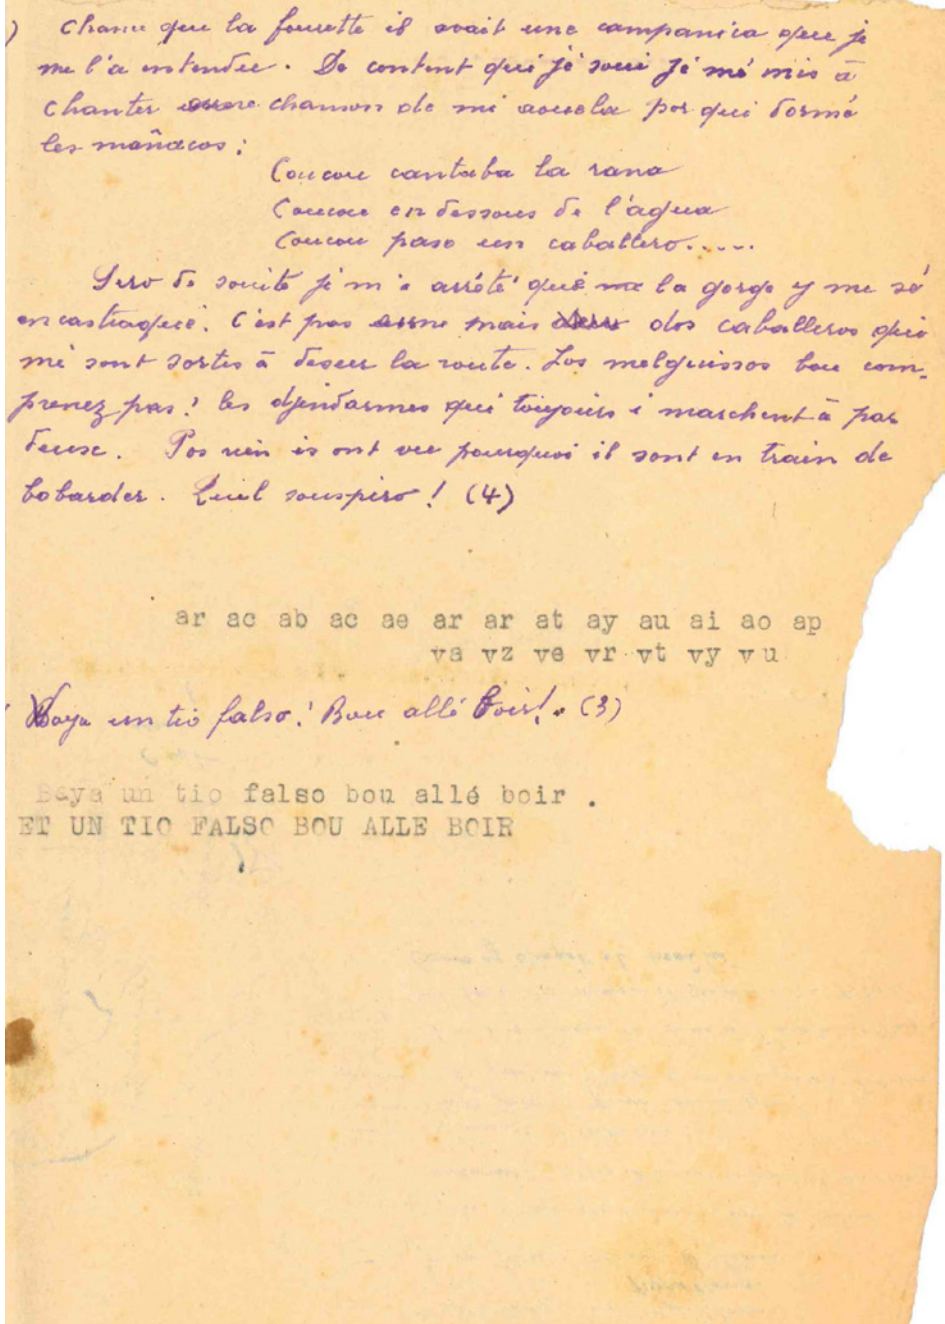 ) Chance que la fourette il avait une campanica que je
me l'a entendue. De content qui jé soui jé mé mis à
chanter chanson de mi aouela por qui dormé
les mañacos :
Coucou cantaba la rana
Coucou en dessous de l'agua
Coucou paso un caballero.....
Sero de souite je m'é arrété qué la gorge y me sé
encastraqué. C'est pas mais dos caballeros qui
mé sont sortis à desur la route. Los melguissos bou com-
prenez pas! les djendarmes qui toujours i marchent à par
deuse. Pos rien is ont vu pourquoi il sont en train de
bobarder. Quil souspiro ! (4)
ar ac ab ac ae ar ar at ay au ai ao ap
va vz ve vr vt vy vu
Baya un tio falso! Bou allé boir! (3)
Baya un tio falso bou allé boir .
ET UN TIO FALSO BOU ALLE BOIR